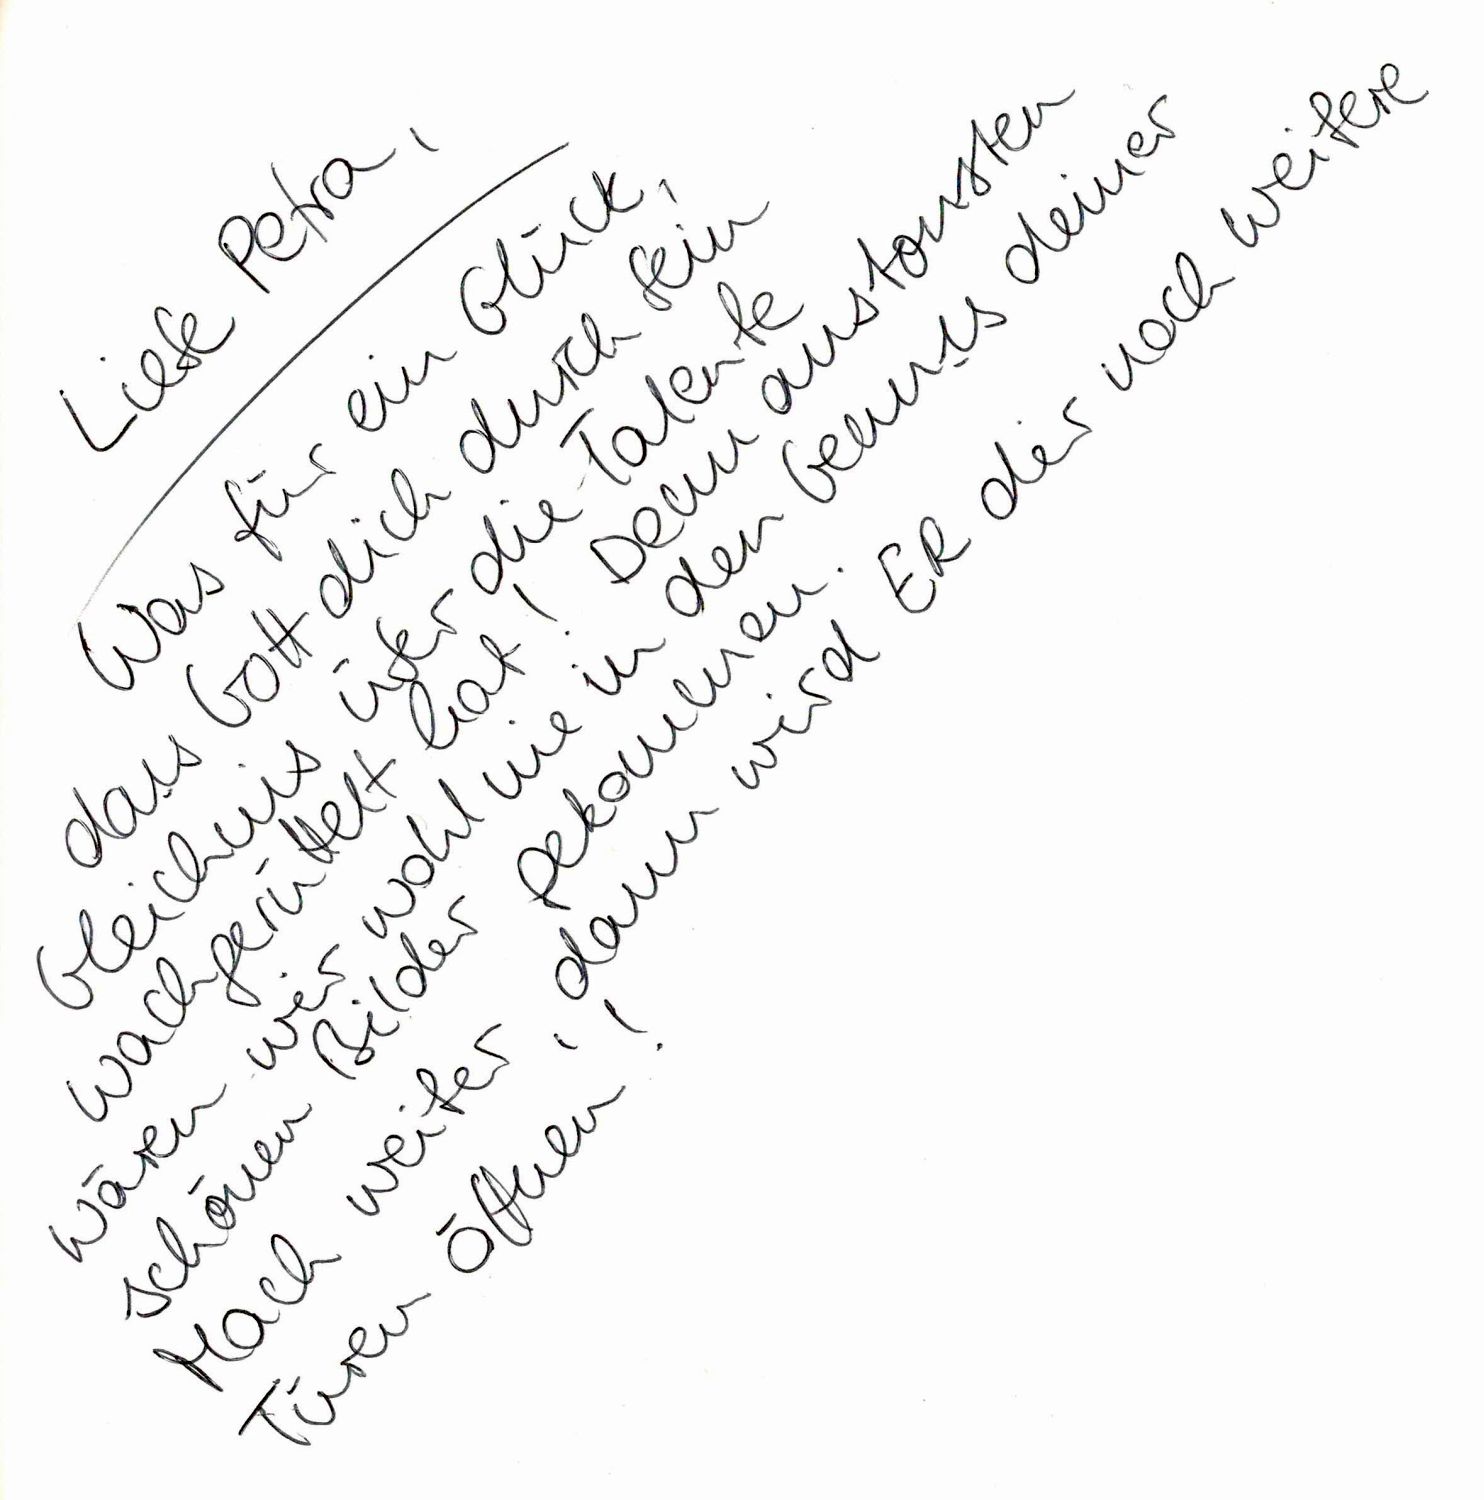 Liebe Petra,
Was für ein Glück,
dass Gott dich durch sein
Gleichnis über die Talente
wachgerüttelt hat! Denn ansonsten
wären wir wohl nie in den Genuss deiner
schönen Bilder gekommen.
Mach weiter, dann wird ER dir noch weitere
Türen öffnen!